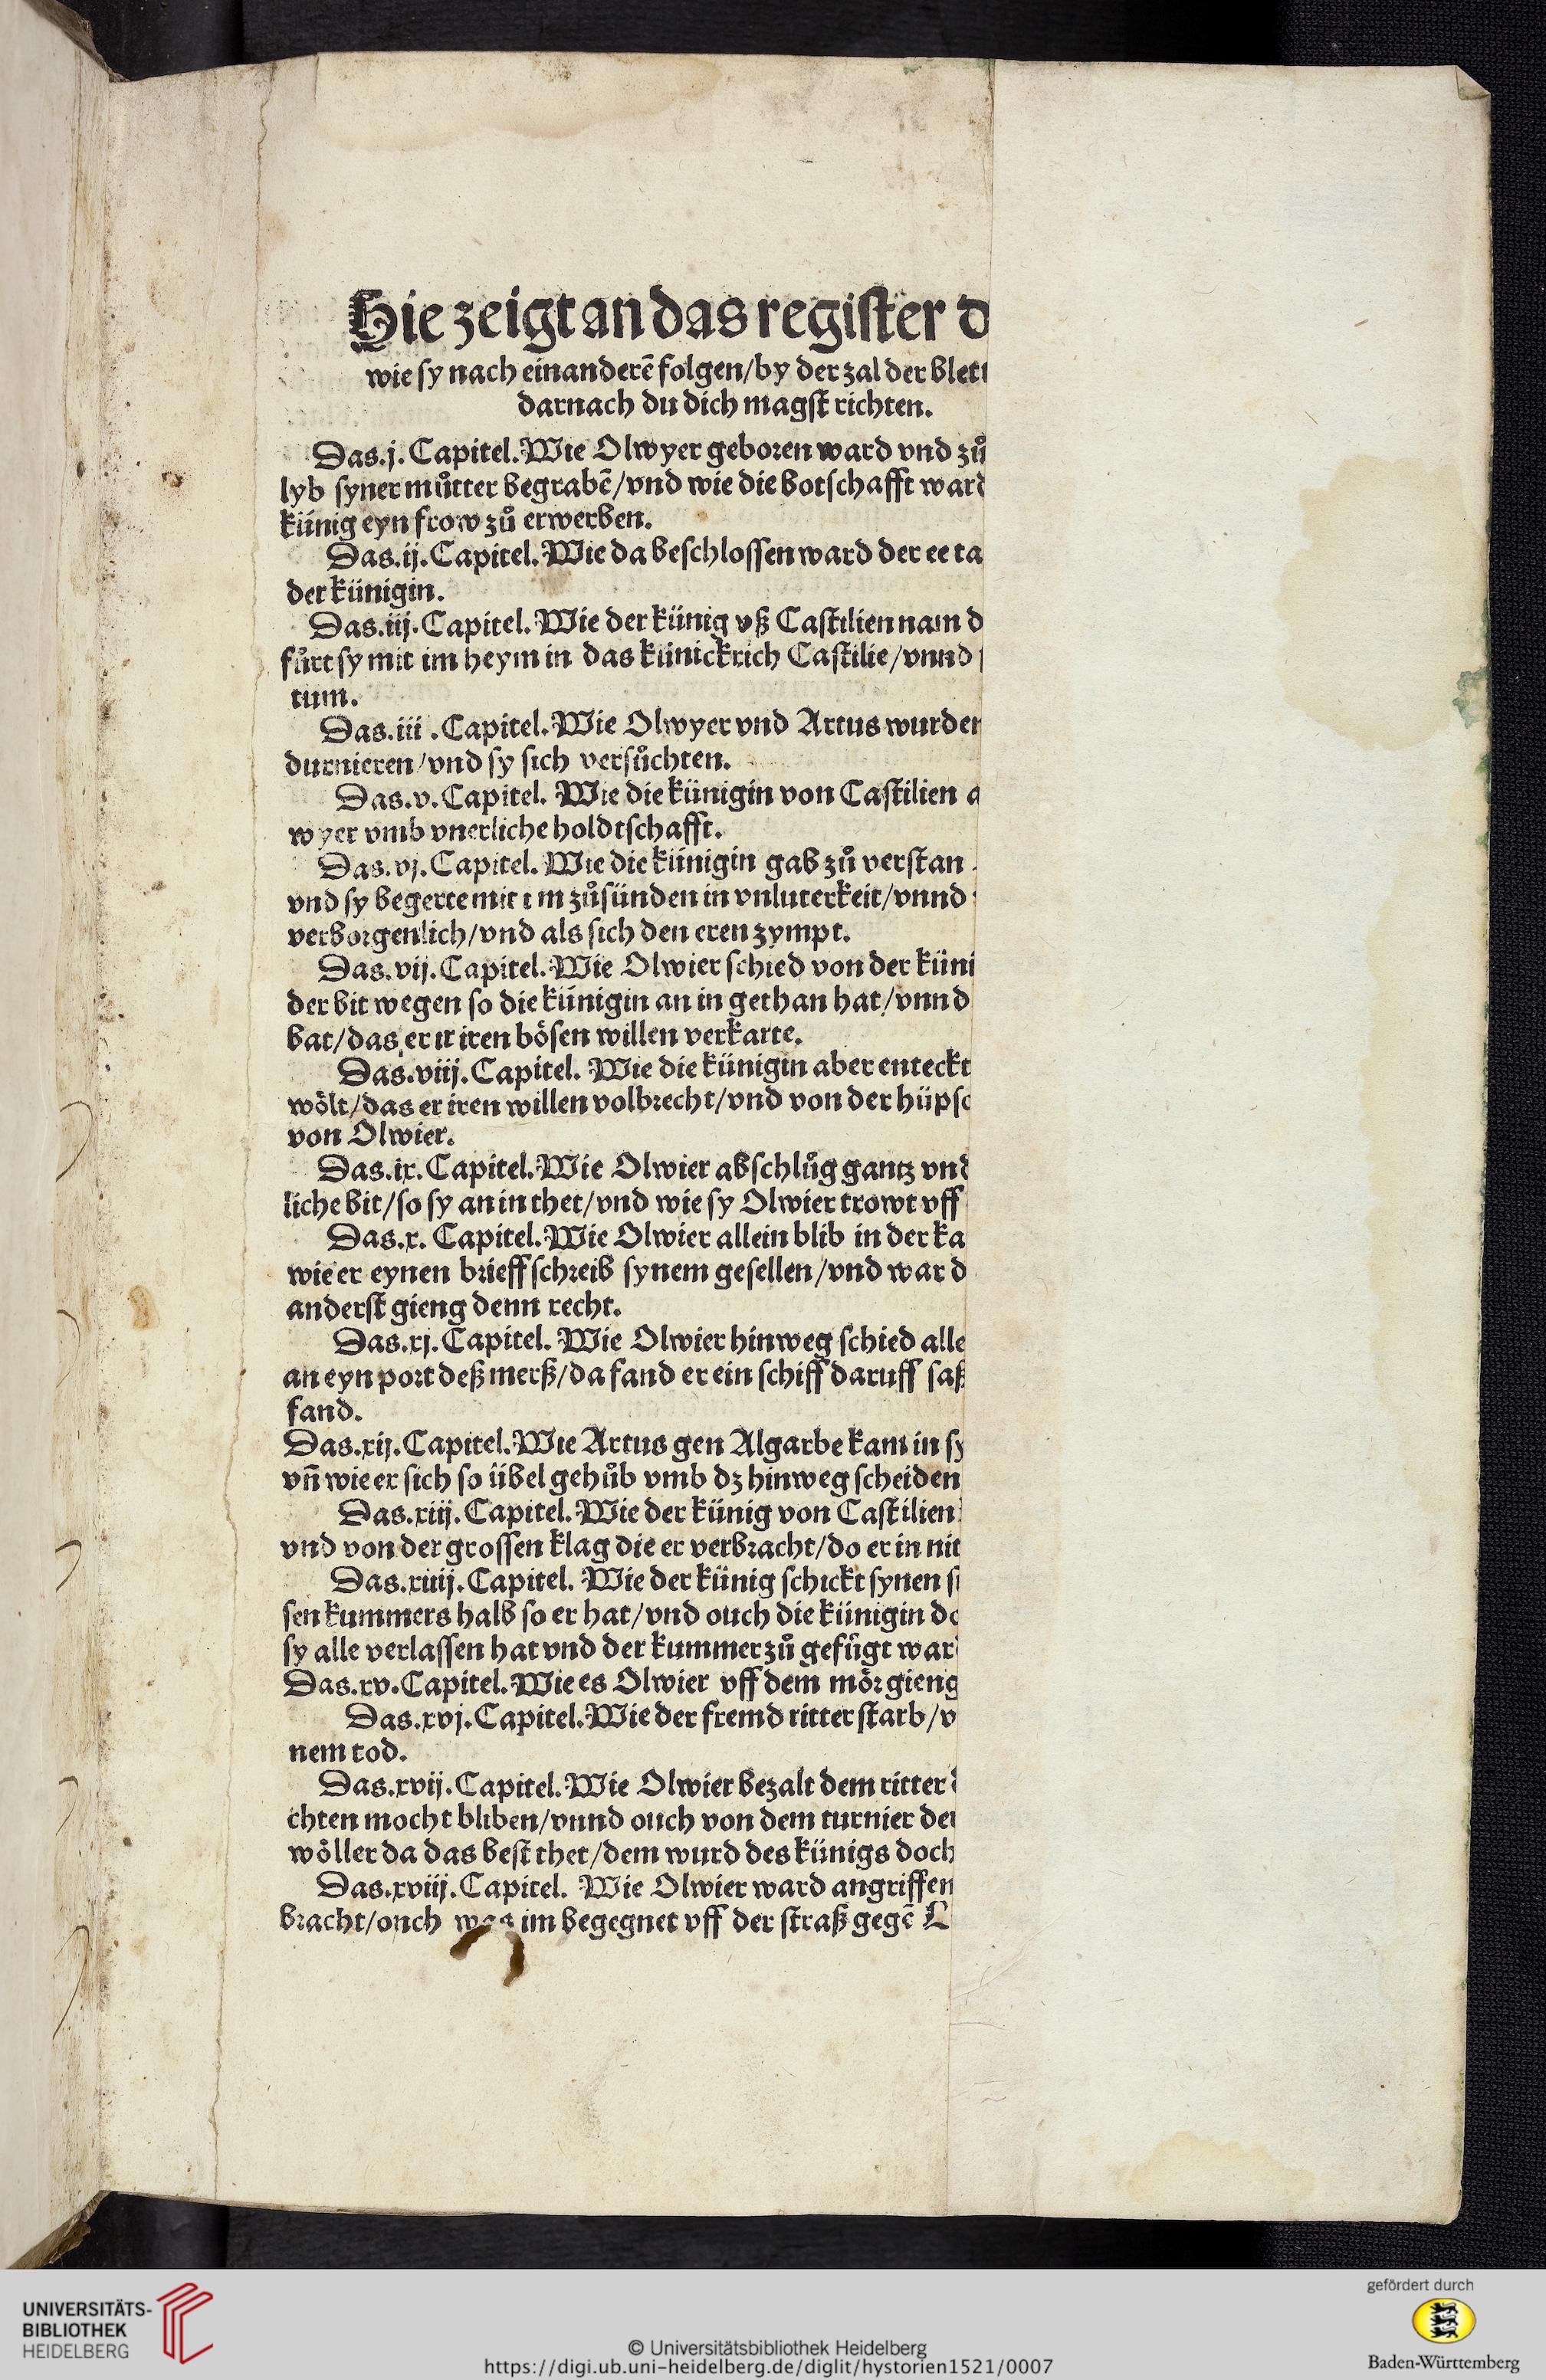 Hie zeigt an das register d
wie sy nach einanderē folgen/by der zal der blett
darnach du dich magst richten.
Das.j. Capitel. Wie Olwyer geboren ward vnd zů
lyb syner můtter begrabē/vnd wie die botschafft ward
künig eyn frow zů erwerben.
Das.ij. Capitel. Wie da beschlossen ward der ee ta
der künigin.
Das.iij. Capitel. Wie der künig vß Castilien nam d
fůrt sy mit im heym in das künickrich Castilie/vnnd
tum.
Das.iii . Capitel. Wie Olwyer vnd Artus wurden
durnieren/vnd sy sich versůchten.
Das.v. Capitel. Wie die künigin von Castilien a
wyer vmb vnerliche holdtschafft.
Das.vj. Capitel. Wie die künigin gab zů verstan
vnd sy begerte mit im zůsünden in vnluterkeit/vnnd
verborgenlich/vnd als sich den eren zympt.
Das.vij. Capitel. Wie Olwier schied von der küni
der bit wegen so die künigin an in gethan hat/vnnd
bat/das er ir iren bösen willen verkarte.
Das.viij. Capitel. Wie die künigin aber enteckt
wölt/das er iren willen volbrecht/vnd von der hüpsc
von Olwier.
Das.ix. Capitel. Wie Olwier abschlůg gantz vnd
liche bit/so sy an in thet/vnd wie sy Olwier trowt vff
Das.x. Capitel. Wie Olwier allein blib in der ka
wie er eynen brieff schreib synem gesellen/vnd war d
anderst gieng denn recht.
Das.xj. Capitel. Wie Olwier hinweg schied alle
an eyn port deß merß/da fand er ein schiff daruff saß
fand.
Das.xij. Capitel. Wie Artus gen Algarbe kam in sy
vn̄ wie er sich so übel gehůb vmb dz hinweg scheiden
Das.xiij. Capitel. Wie der künig von Castilien
vnd von der grossen klag die er verbracht/do er in nit
Das.xiiij. Capitel. Wie der künig schickt synen si
sen kummers halb so er hat/vnd ouch die künigin do
sy alle verlassen hat vnd der kummer zů gefůgt ward
Das.xv. Capitel. Wie es Olwier vff dem mör gieng
Das.xvj. Capitel. Wie der fremd ritter starb/v
nem tod.
Das.xvij. Capitel. Wie Olwier bezalt dem ritter d
chten mocht bliben/vnnd ouch von dem turnier der
wöller da das best thet/dem wurd des künigs doch
Das.xviij. Capitel. Wie Olwier ward angriffen
bracht/onch was im begegnet vff der straß gegē L
UNIVERSITÄTS-
BIBLIOTHEK
HEIDELBERG
© Universitätsbibliothek Heidelberg
https://digi.ub.uni-heidelberg.de/diglit/hystorien1521/0007
gefördert durch
Baden-Württemberg